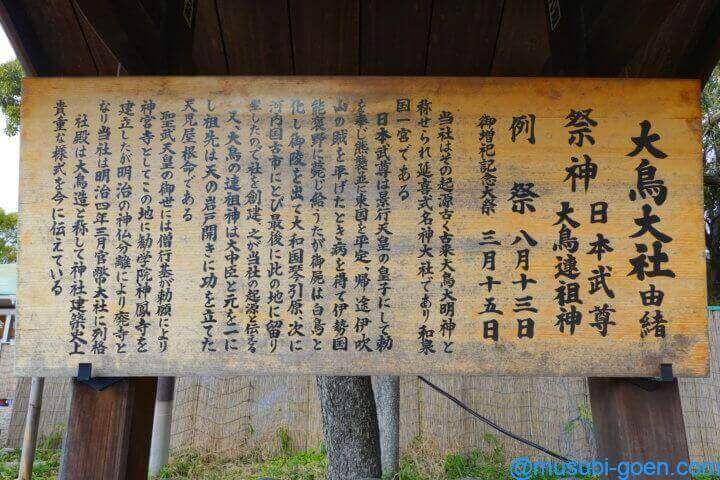 大鳥大社由緒
祭神 日本武尊
大鳥連祖神
例祭 八月十三日
御増祀記念大祭 三月十五日
当社はその起源古く古来大鳥大明神と
称せられ延喜式名神大社であり和泉
国一宮である
日本武尊は景行天皇の皇子にして勅
を奉じ熊襲並に東国を平定、帰途伊吹
山の賊を平げたとき病を得て伊勢国
能褒野に薨じ給うたが御屍は白鳥と
化し御陵を出で大和国琴引原、次に
河内国古市にとび最後に此の地に留り
ましたので社を創建、之が当社の起源を伝える
又大鳥の連祖神は大中臣と元を一に
し祖先は天の岩戸開きに功を立てた
天児屋根命である
聖武天皇の御世には僧行基が勅願により
神宮寺としてこの地に勧学院神鳳寺を
建立したが明治の神仏分離により廃寺と
なり当社は明治四年三月官幣大社に列格
社殿は大鳥造と称して神社建築史上
貴重な様式を今に伝えている
@musubi-goen.com/